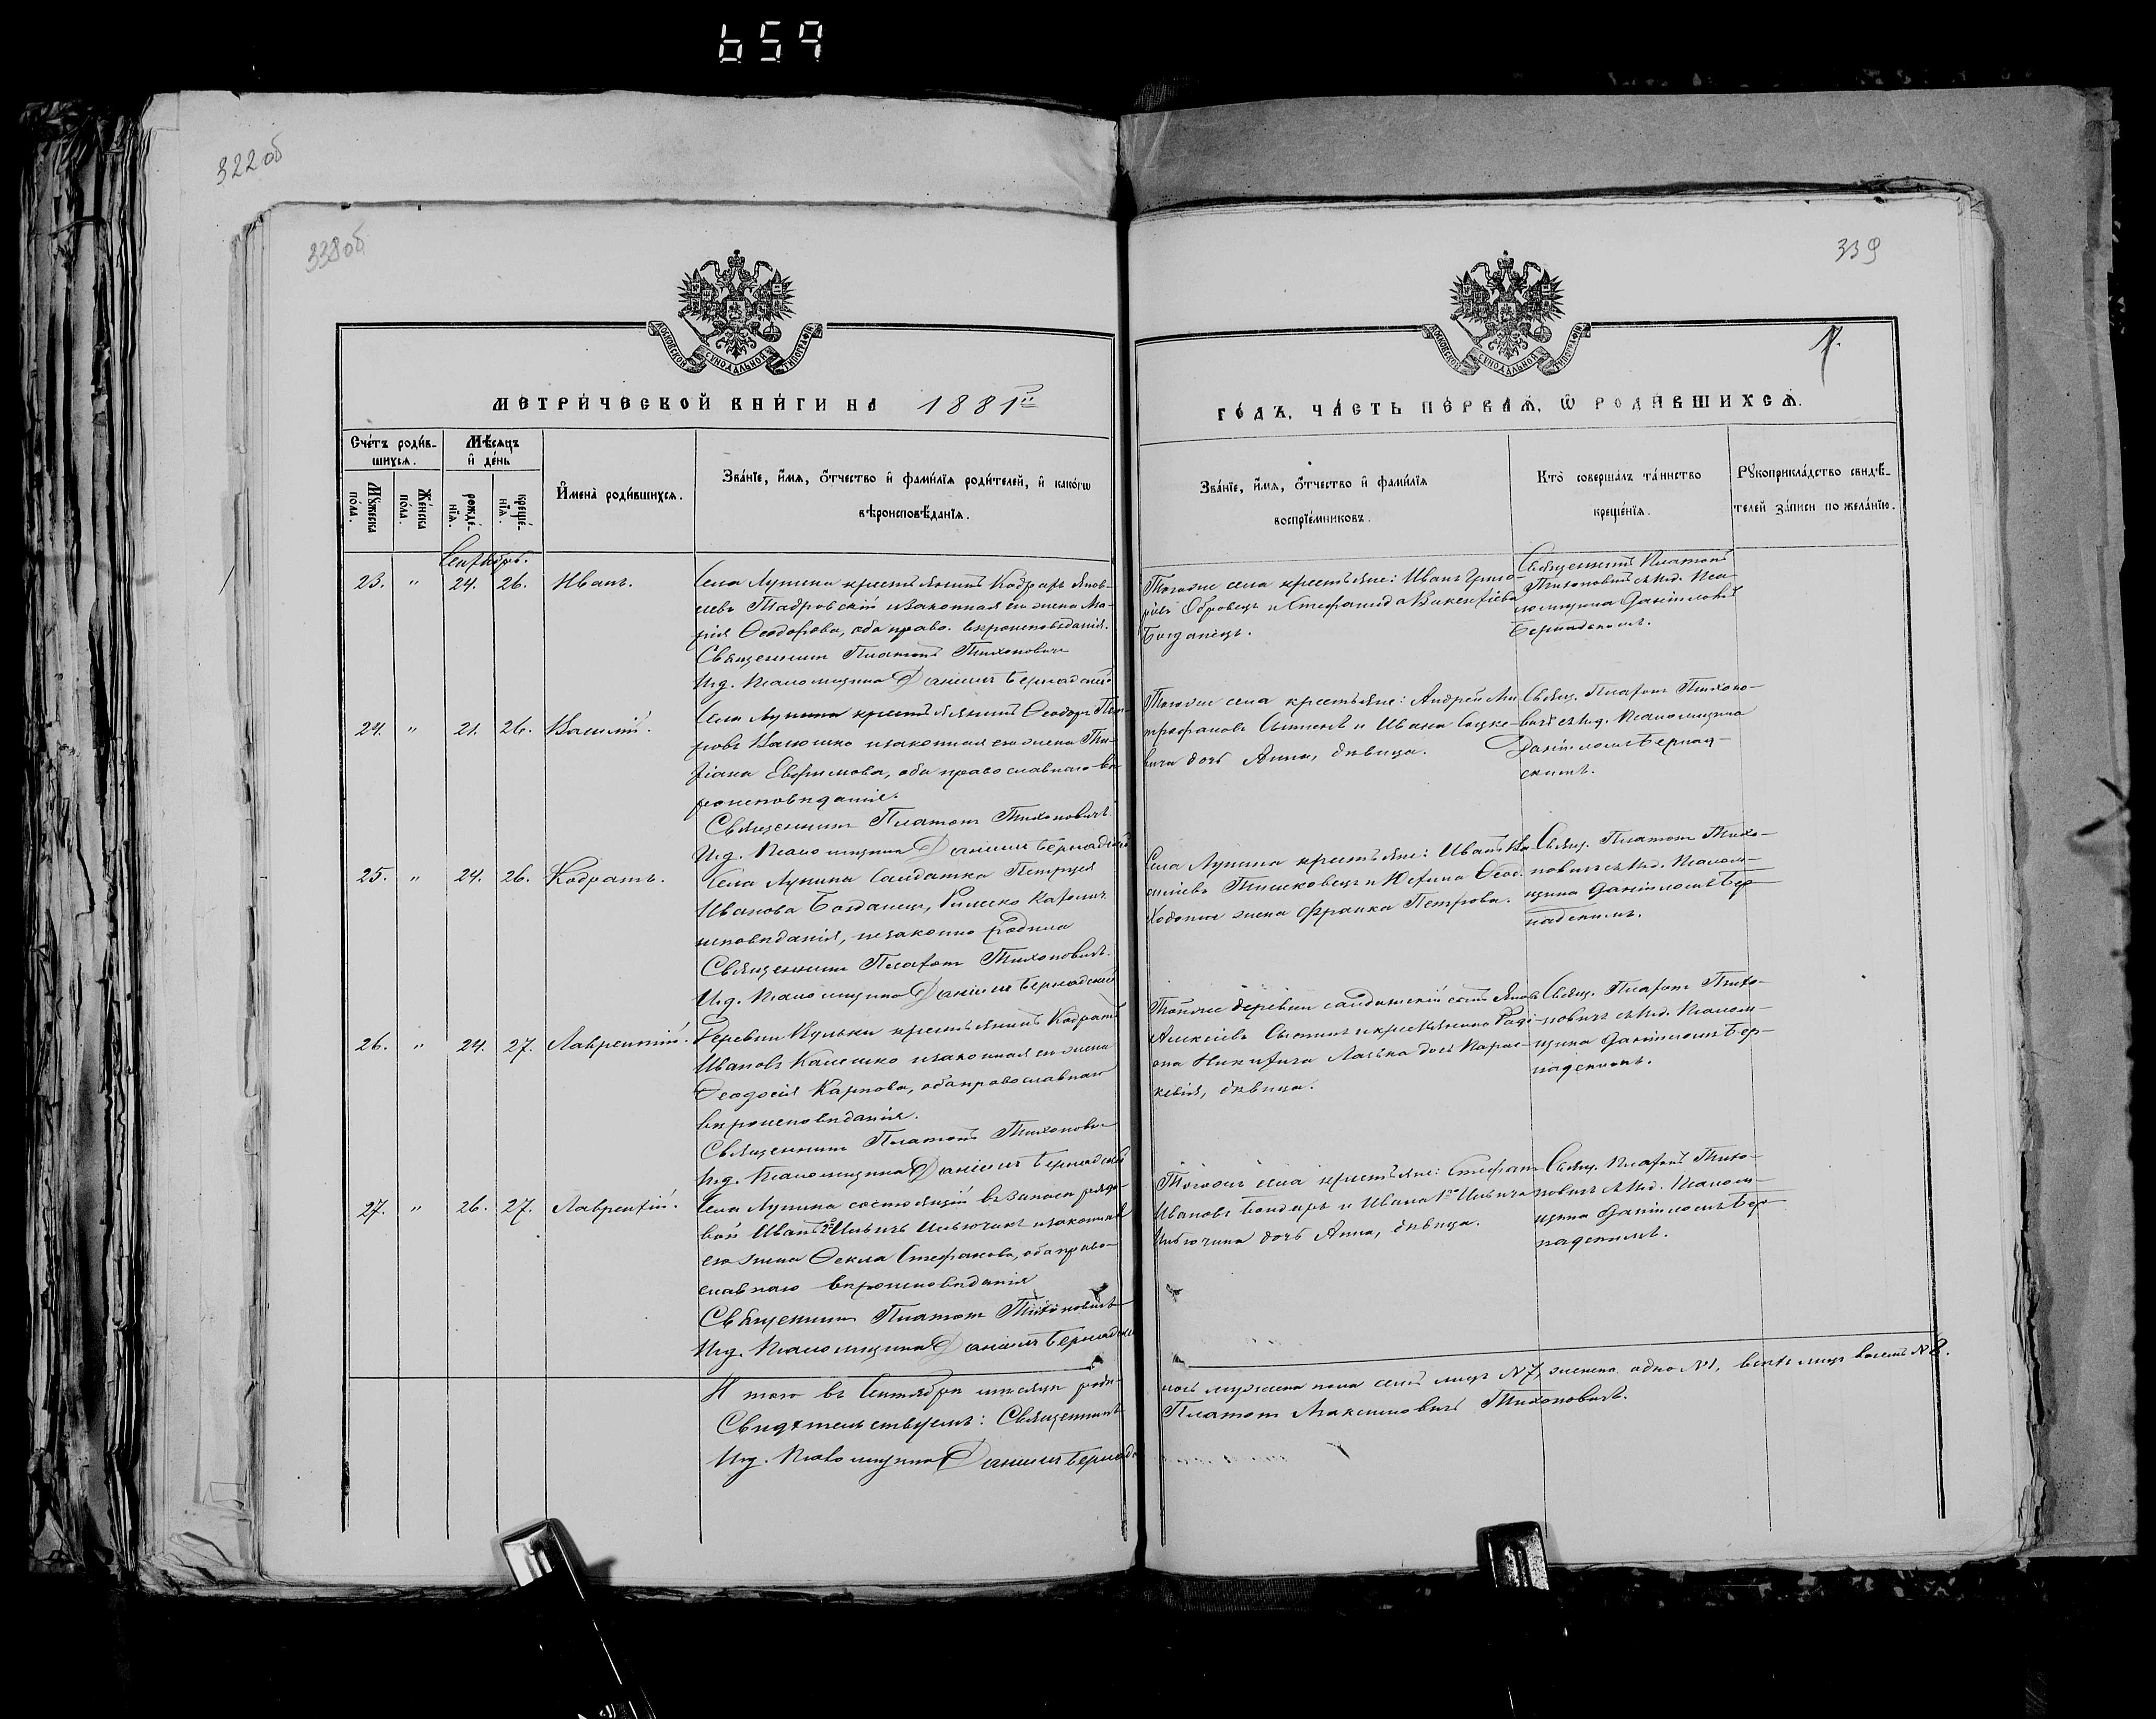 659
322 об
338 об
339
МОСКОВСКОЙ СУНОДАЛЬНОЙ ТИПОГРАФІИ
МОСКОВСКОЙ СУНОДАЛЬНОЙ ТИПОГРАФІИ
МЕТРИ́ЧЕСКОЙ КНИ́ГИ НА 1881й
ГО́ДЪ, ЧА́СТЬ ПЕ́РВАѦ, Ѡ РОДИ́ВШИХСѦ.
Сче́тъ роди́в-
шихсѧ.
Мѣсѧцъ
и҆ де́нь
Мꙋжеска по́ла.
Же́нска по́ла.
рожде́-
нїѧ.
креще́-
нїѧ.
И҆мена̀ роди́вшихсѧ.
Зва́нїе, и҆́мѧ, ѻ҆́тчество и҆ фами́лїѧ роди́телей, и҆ како́гѡ
вѣроисповѣ́данїѧ.
Зва́нїе, и҆́мѧ, ѻ҆́тчество и҆ фами́лїѧ
воспрїе́мниковъ.
Кто̀ соверша́лъ та́инство
креще́нїѧ.
Рꙋкоприкла́дство свидѣ́-
телей за́писи по жела́нїю.
Сентябрь.
23. " 24. 26. Иванъ.
Села Лунина крестьянинъ Кодратъ Яков-
левъ и законная его жена Ма-
рія Ѳеодорова, оба право. вероисповѣданія.
Священникъ Платонъ Тихоновичъ
И.д. Псаломщика Даніилъ Бернадскій
Тогоже села крестьяне: Иванъ Григо-
рьевъ и Стефанида Викентіева
Богданецъ.
Священникъ Платонъ
Тихоновичъ съ И.д. Пса-
ломщика Даніиломъ
Бернадскимъ.
24. " 21. 26. Василій.
Села Лунина крестьянинъ Ѳеодоръ Пет-
ровъ и законная его жена Та-
тіана Евфимова, оба православнаго вѣ-
роисповѣданія.
Священникъ Платонъ Тихоновичъ.
И.д. Псаломщика Даніилъ Бернадскій
Тогоже села крестьяне: Андрей Ми-
трофановъ и Ивана Сацке-
вича дочь Анна, дѣвица.
Свящ. Платонъ Тихоно-
вичъ съ И.д. Псаломщика
Даніиломъ Бернад-
скимъ.
25. " 24. 26. Кодратъ.
Села Лунина Солдатка Петруня
Иванова Богданецъ, Римско Католич.
исповѣданія, незаконно родила
Священникъ Платонъ Тихоновичъ.
И.д. Псаломщика Даніилъ Бернадскій
Села Лунина крестьяне: Иванъ Ва-
силіевъ и Ѳеод.
жена Франка Петрова.
Свящ. Платонъ Тихо-
новичъ съ И.д. Псалом-
щика Даніиломъ Бер-
надскимъ.
26. " 24. 27. Лаврентій.
Деревни Вульки крестьянинъ Кодратъ
Ивановъ и законная его жена
Ѳеодосія Карпова, оба православнаго
вѣроисповѣданія.
Священникъ Платонъ Тихоновичъ
И.д. Псаломщика Даніилъ Бернадскій
Тойже деревни солдатскій сынъ Яковъ
Алексіевъ и крестьянина Роди-
она Никитича дочь Парас-
кевія, дѣвица.
Свящ. Платонъ Тихо-
новичъ съ И.д. Псалом-
щика Даніиломъ Бер-
надскимъ.
27. " 26. 27. Лаврентій.
Села Лунина состоящій въ запасѣ рядо-
вой Иванъ 2й Ильичъ Ильючикъ и законная
его жена Ѳекла Стефанова, оба право-
славнаго вѣроисповѣданія
Священникъ Платонъ Тихоновичъ
И.д. Псаломщика Даніилъ Бернадскій
Тогоже села крестьяне: Стефанъ
Ивановъ Бондарь и Ивана 1го Ильича
Ильючика дочь Анна, дѣвица.
Свящ. Платонъ Тихо-
новичъ съ И.д. Псалом-
щика Даніиломъ Бер-
надскимъ.
Итого въ Сентябрѣ мѣсяцѣ роди-
лось мужеска пола семь лицъ № 7, женска одно № 1, всѣхъ лицъ восемь № 8.
Свидѣтельствуемъ: Священникъ
Платонъ Максимовичъ Тихоновичъ.
И.д. Псаломщика Даніилъ Бернадс